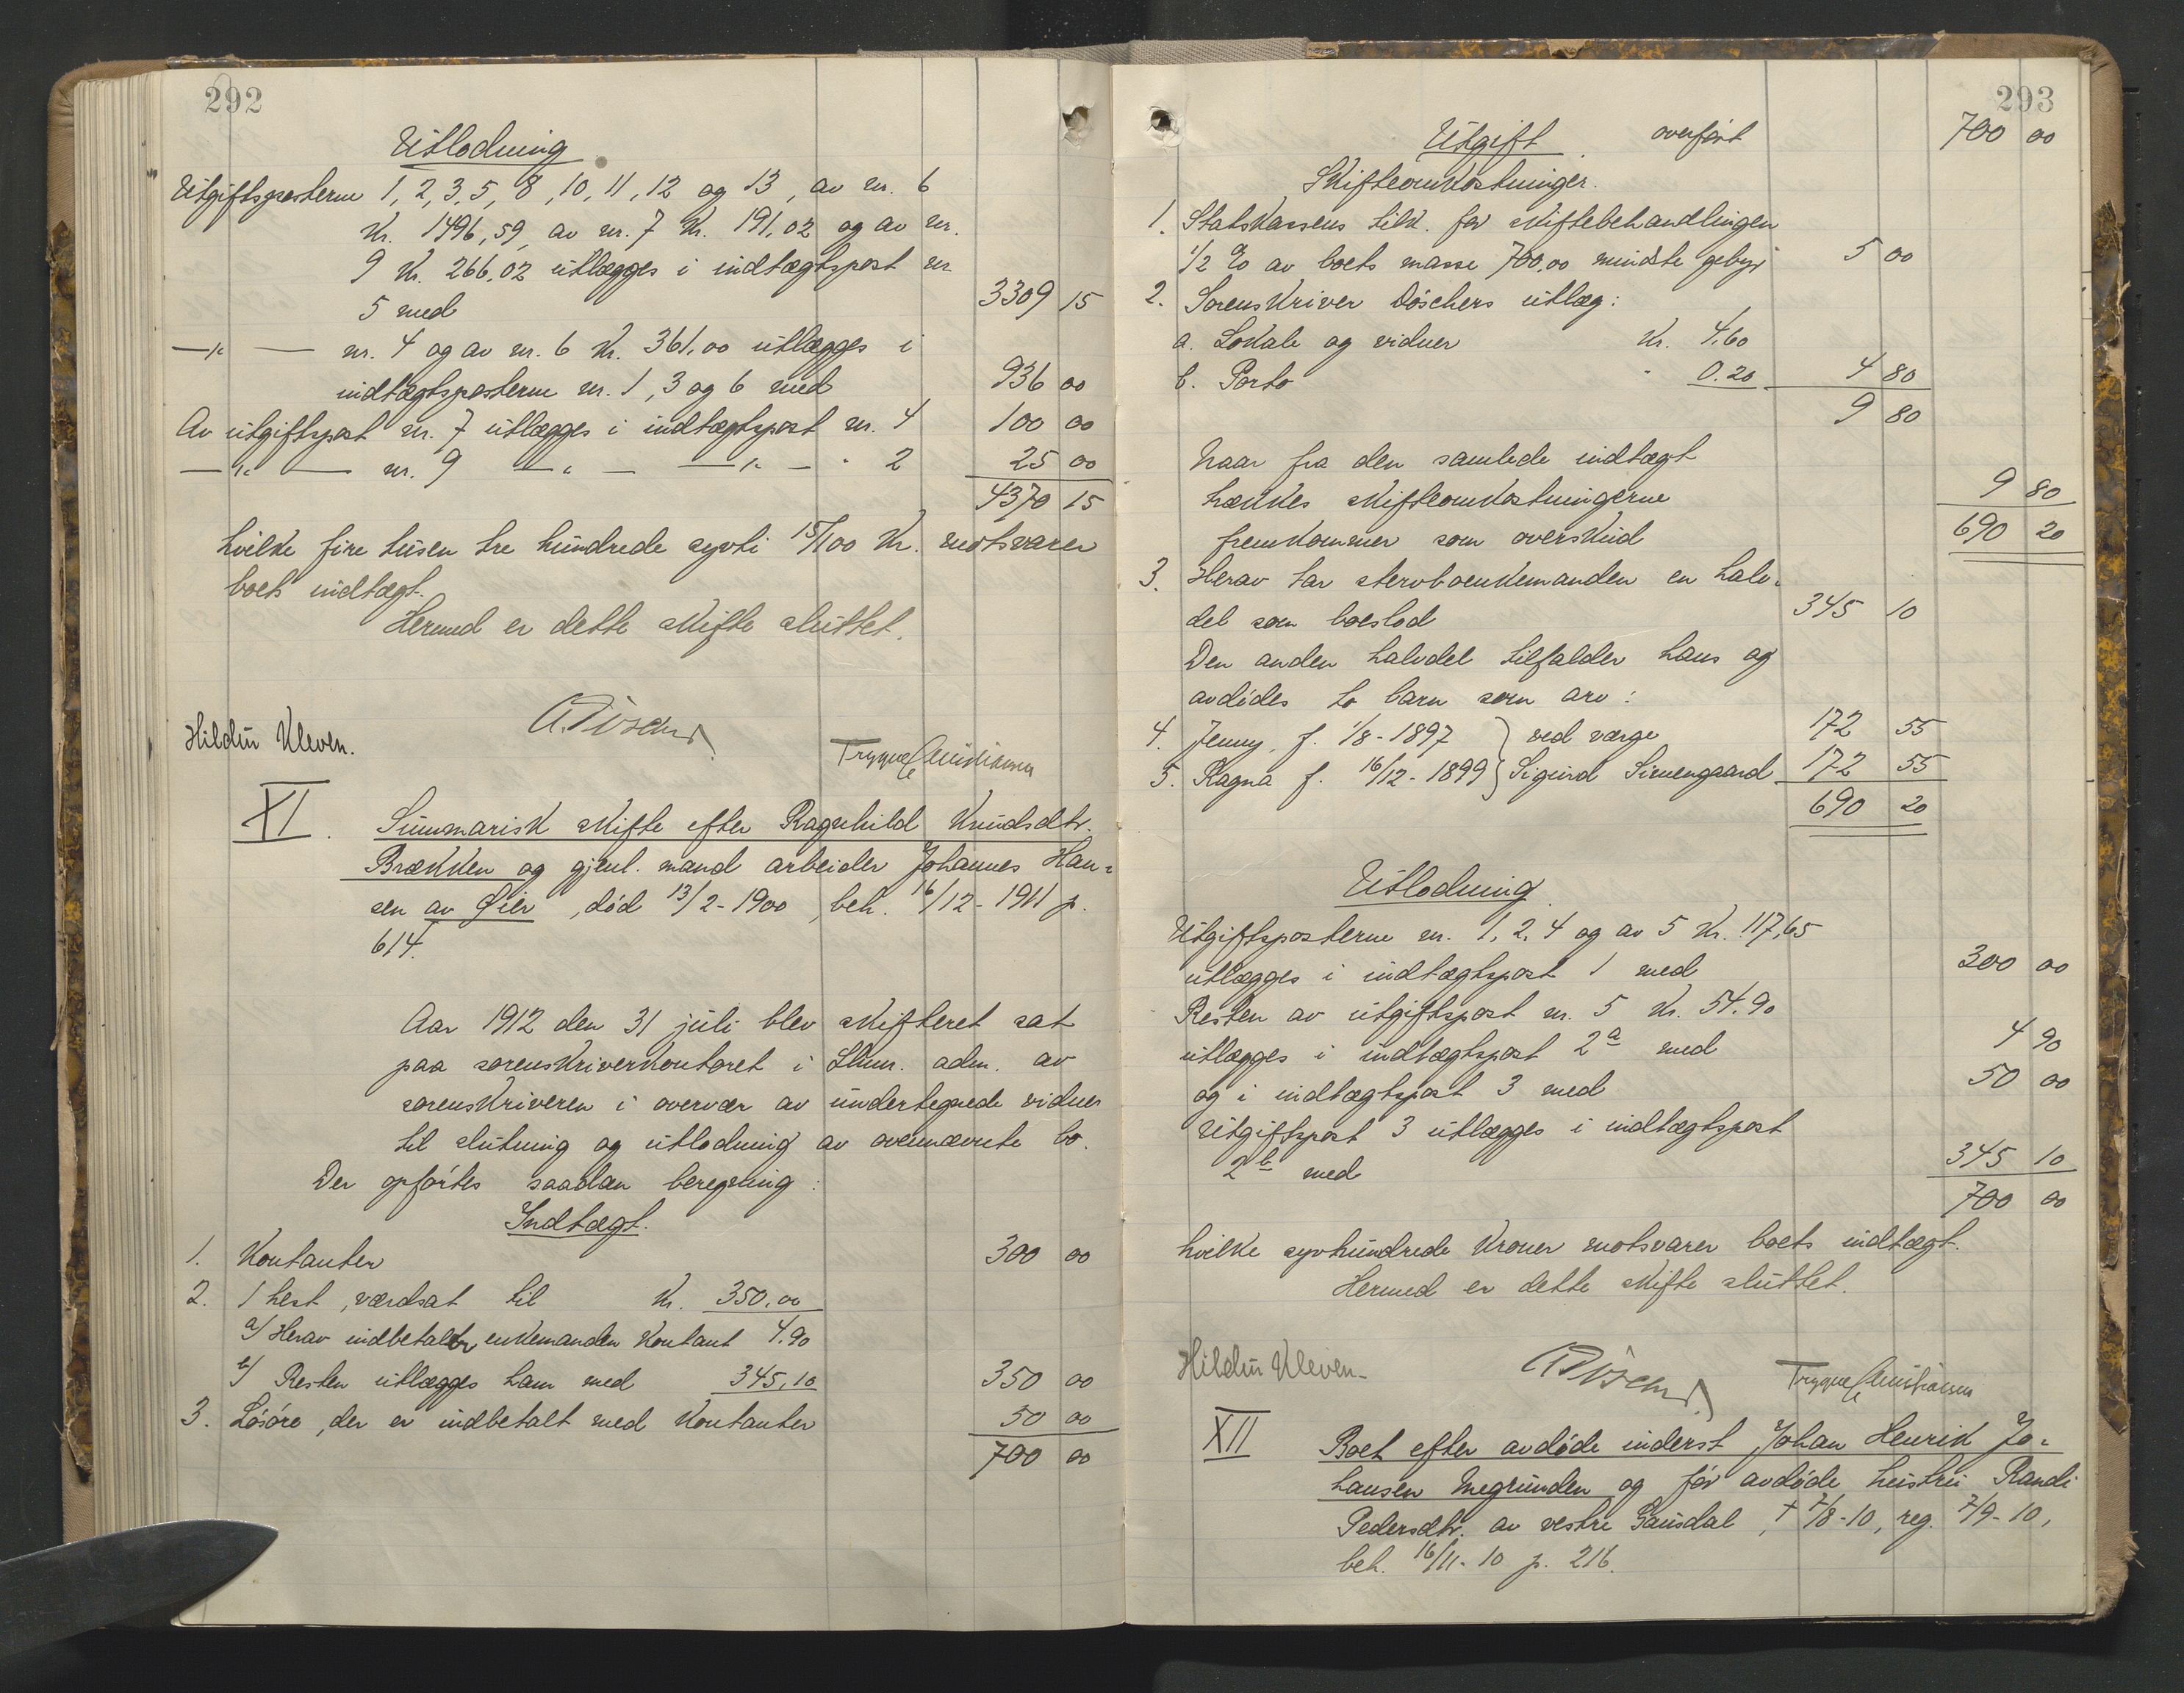 292
Utlodning.
Utgiftsposterne 1, 2, 3, 5, 8, 10, 11, 12 og 13, av nr. 6
kr. 1496,59, av nr. 7 kr. 191,02 og av nr.
9 kr. 266,02 utlægges i indtægtspost nr
5 med 3309 15
—"— nr. 4 og av nr. 6 kr. 361,00 utlægges i
indtægtsposterne nr. 1, 3 og 6 med 936 00
Av utgiftspost nr. 7 utlægges i indtægtspost nr. 4 100 00
—"— nr. 9 —"— —"— " 2 25 00
4370 15
hvilke fire tusen tre hundrede sytti 15/100 kr. motsvarer
boets indtægt.
Hermed er dette skifte sluttet.
Hildur Kleven.
Trygve Christiansen
XI. Summarisk skifte efter Ragnhild Knudsdtr.
Brækken og gjenl. mand arbeider Johannes Han-
sen av Øier, död 13/2-1900, beh. 16/12-1911 p.
614.
Aar 1912 den 31 juli blev skifteret sat
paa sorenskriverkontoret i Lhmr. adm. av
sorenskriveren i overvær av undertegnede vidner
til slutning og utlodning av ovennævnte bo.
Der opförtes saadan beregning:
Indtægt.
1. Kontanter 300 00
2. 1 hest, værdsat til kr. 350,00
a/ Herav indbetaler enkemanden kontant 4.90
b/ Resten utlægges ham med 345,10 350 00
3. Lösöre, der er indbetalt med kontanter 50 00
700 00
293
Utgift. overfört 700 00
Skifteomkostninger.
1. Statskassens tilk. for skiftebehandlingen
1/2 % av boets masse 700,00 mindste gebyr 5 00
2. Sorenskriver Döschers utlæg:
a. Lokale og vidner kr. 4,60
b. Porto " 0.20 4 80
9 80
Naar fra den samlede indtægt
trækkes skifteomkostningerne 9 80
fremkommer som overskud 690 20
3. Herav tar stervboenkemanden en halv-
del som boeslod 345 10
Den anden halvdel tilfalder hans og
avdödes to barn som arv:
4. Jenny, f. 1/8-1897 } ved værge 172 55
5. Ragna f. 16/12-1899 } Sigurd Simengaard 172 55
690 20
Utlodning.
Utgiftsposterne nr. 1, 2, 4 og av 5 kr. 117,65
utlægges i indtægtspost 1 med 300 00
Resten av utgiftspost nr. 5 kr. 54.90
utlægges i indtægtspost 2a med 4 90
og i indtægtspost 3 med 50 00
Utgiftspost 3 utlægges i indtægtspost
2b med 345 10
700 00
hvilke syvhundrede kroner motsvarer boets indtægt.
Hermed er dette skifte sluttet.
Hildur Kleven.
Trygve Christiansen
XII Boet efter avdöde inderst Johan Henrik Jo-
hansen Megrunden og för avdöde hustru Randi
Pedersdtr. av vestre Gausdal, † 7/8-10, reg. 7/9-10,
beh. 16/11-10 p. 216.